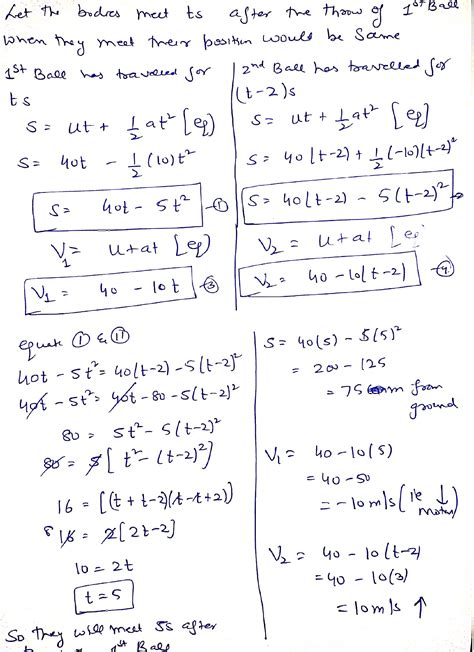 Let the bodies meet ts after the throw of 1st Ball
when they meet their position would be same
1st Ball has travelled for
t s
S = ut + 1/2 at² [eq]
S = 40t - 1/2 (10)t²
S = 40t - 5t² —①
V₁ = u+at [eq]
V₁ = 40 - 10t —③
2nd Ball has travelled for
(t-2)s
S = ut + 1/2 at² [eq]
S = 40(t-2) + 1/2 (-10)(t-2)²
S = 40(t-2) - 5(t-2)²
V₂ = u+at [eq]
V₂ = 40 - 10(t-2) —④
equate ① & ⑪
40t - 5t² = 40(t-2) - 5(t-2)²
40t - 5t² = 40t - 80 - 5(t-2)²
80 = 5t² - 5(t-2)²
80 = 5[t² - (t-2)²]
16 = [(t + t-2)(t-t+2)]
8 16 = 2[2t-2]
10 = 2t
t = 5
So they will meet 5s after
1st Ball
S = 40(5) - 5(5)²
= 200 - 125
= 75 m from
ground
V₁ = 40 - 10(5)
= 40 - 50
= -10 m/s (ie ↓
motion)
V₂ = 40 - 10(t-2)
= 40 - 10(3)
= 10 m/s ↑